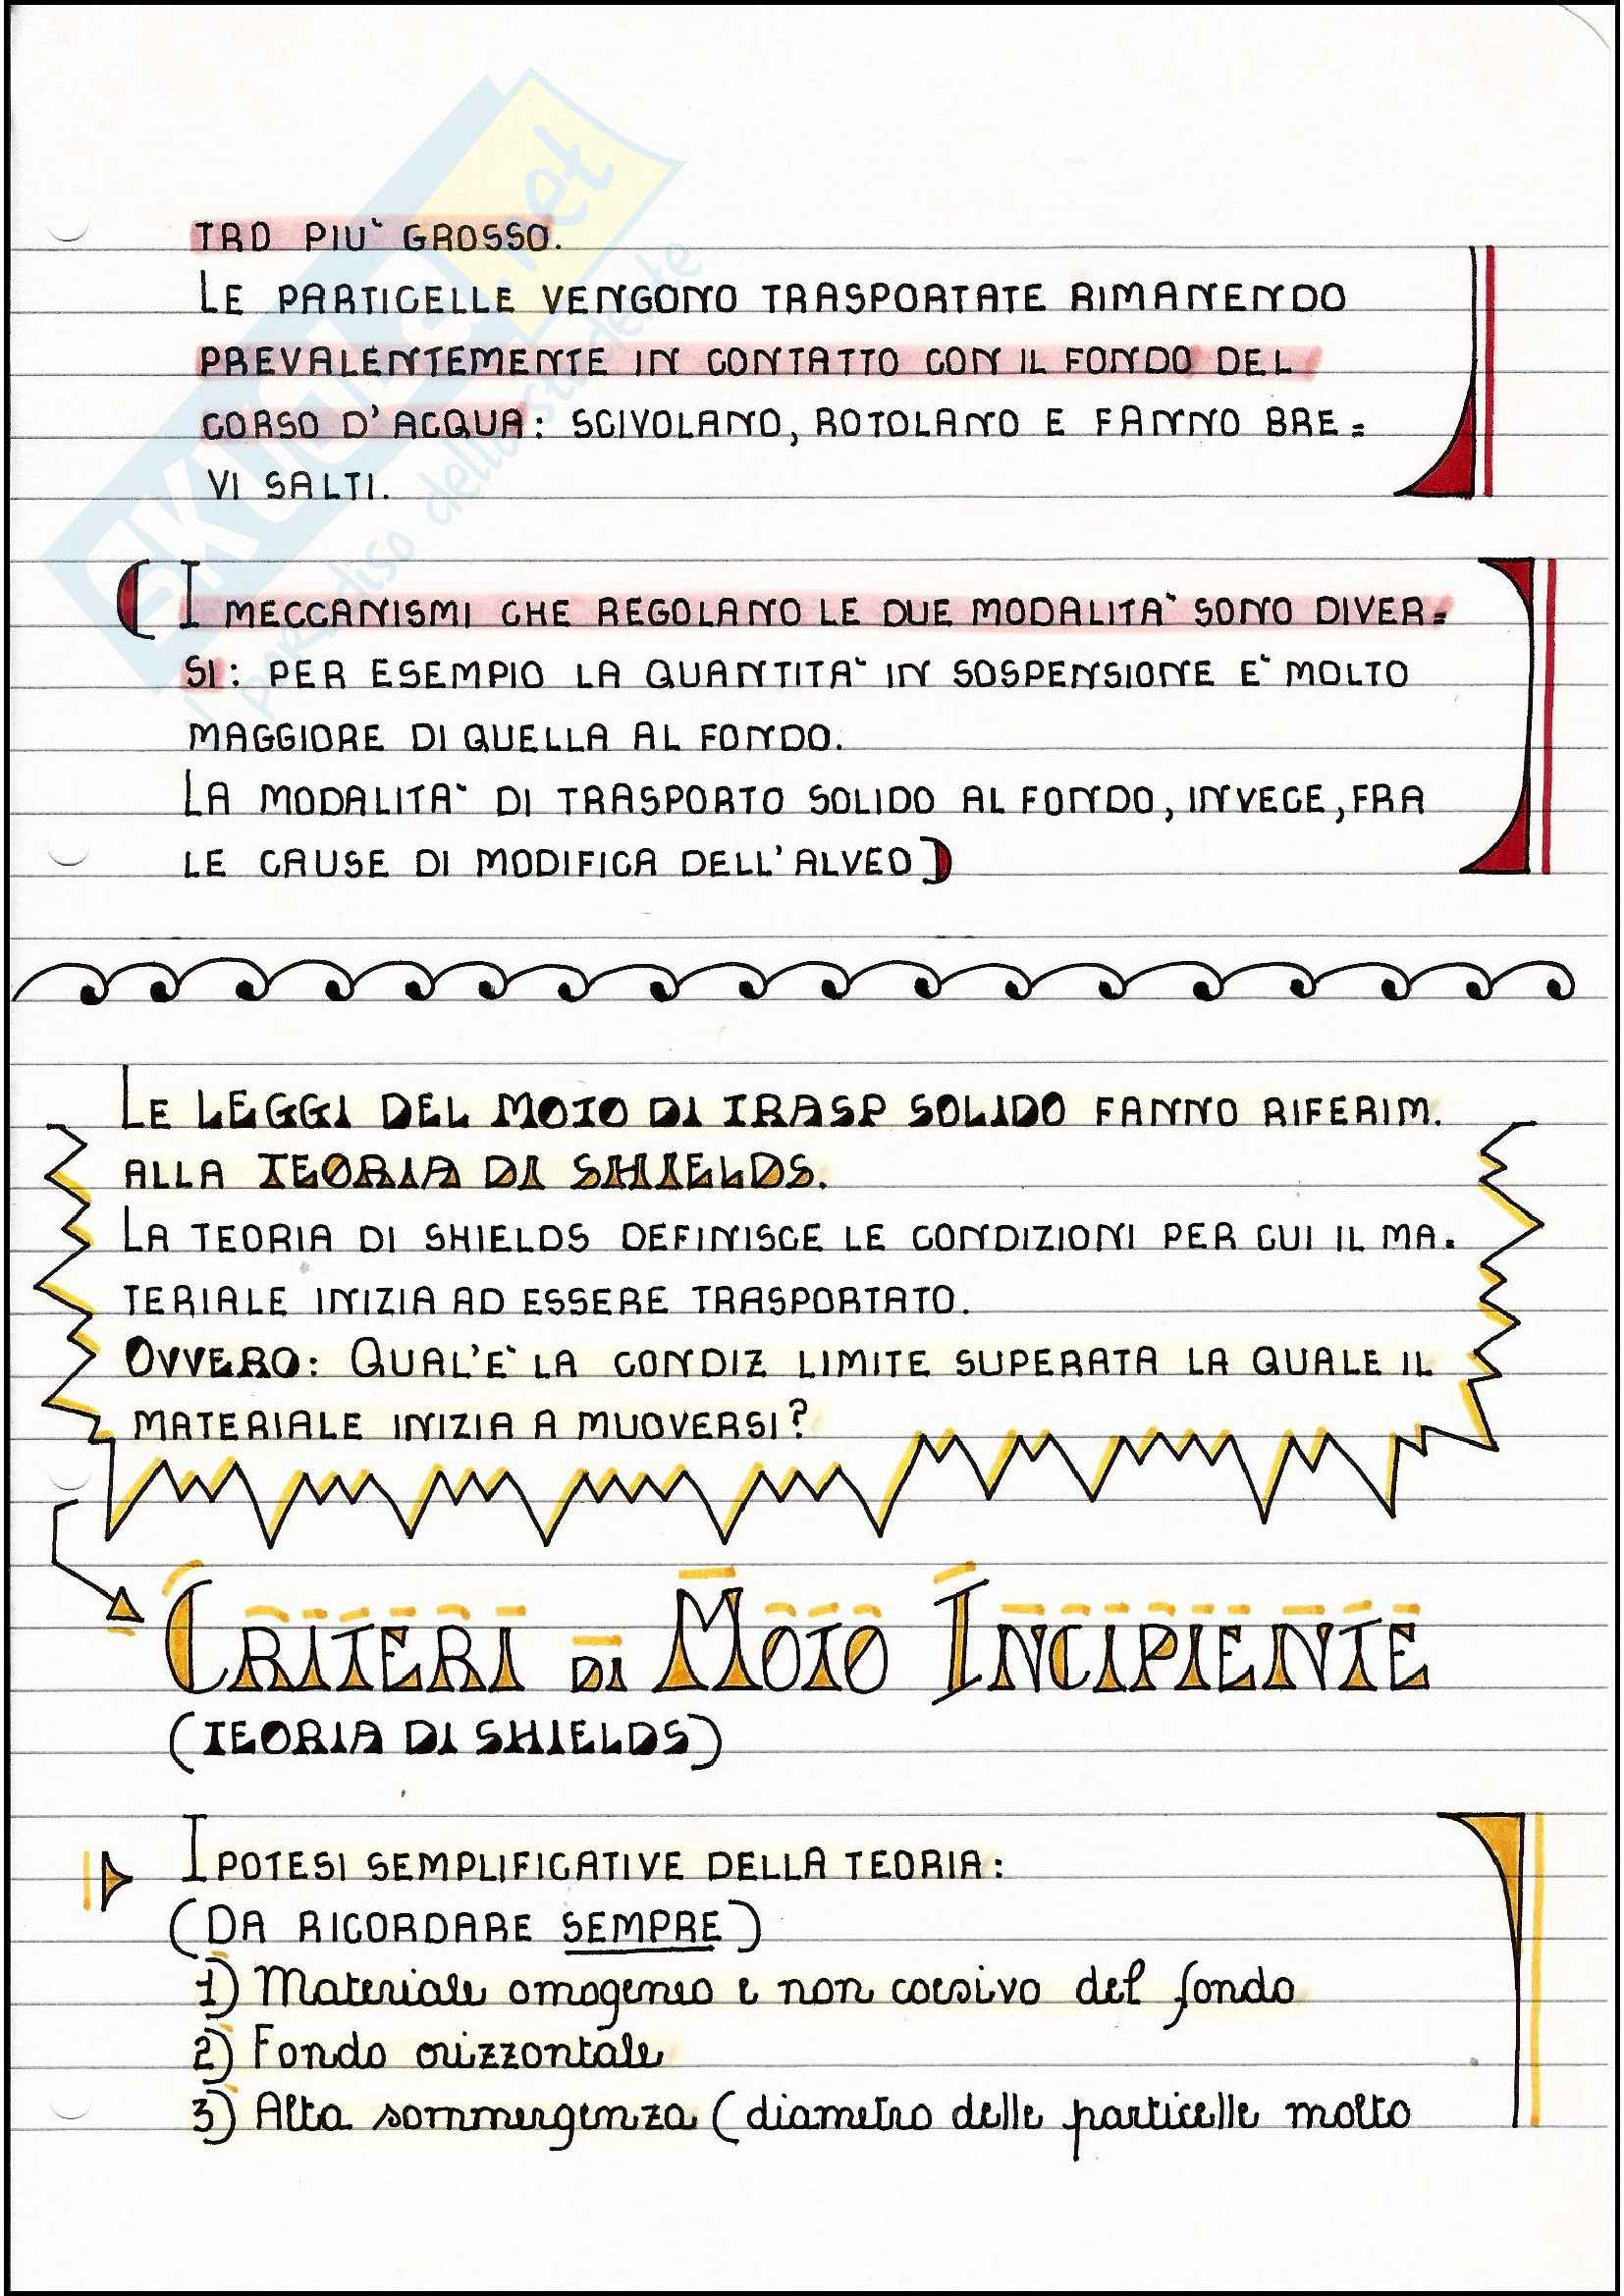 SKUOLA.net
il paradiso dello studente
TRO PIU' GROSSO.
LE PARTICELLE VENGONO TRASPORTATE RIMANENDO
PREVALENTEMENTE IN CONTATTO CON IL FONDO DEL
CORSO D'ACQUA: SCIVOLANO, ROTOLANO E FANNO BRE=
VI SALTI.
(I MECCANISMI CHE REGOLANO LE DUE MODALITA' SONO DIVER=
SI: PER ESEMPIO LA QUANTITA' IN SOSPENSIONE E' MOLTO
MAGGIORE DI QUELLA AL FONDO.
LA MODALITA' DI TRASPORTO SOLIDO AL FONDO, INVECE, FRA
LE CAUSE DI MODIFICA DELL'ALVEO)
LE LEGGI DEL MOTO DI TRASP SOLIDO FANNO RIFERIM.
ALLA TEORIA DI SHIELDS.
LA TEORIA DI SHIELDS DEFINISCE LE CONDIZIONI PER CUI IL MA=
TERIALE INIZIA AD ESSERE TRASPORTATO.
OVVERO: QUAL'E' LA CONDIZ LIMITE SUPERATA LA QUALE IL
MATERIALE INIZIA A MUOVERSI?
CRITERI DI MOTO INCIPIENTE
(TEORIA DI SHIELDS)
IPOTESI SEMPLIFICATIVE DELLA TEORIA:
(DA RICORDARE SEMPRE)
1) Materiale omogeneo e non coesivo del fondo
2) Fondo orizzontale
3) Alta sommergenza (diametro delle particelle molto